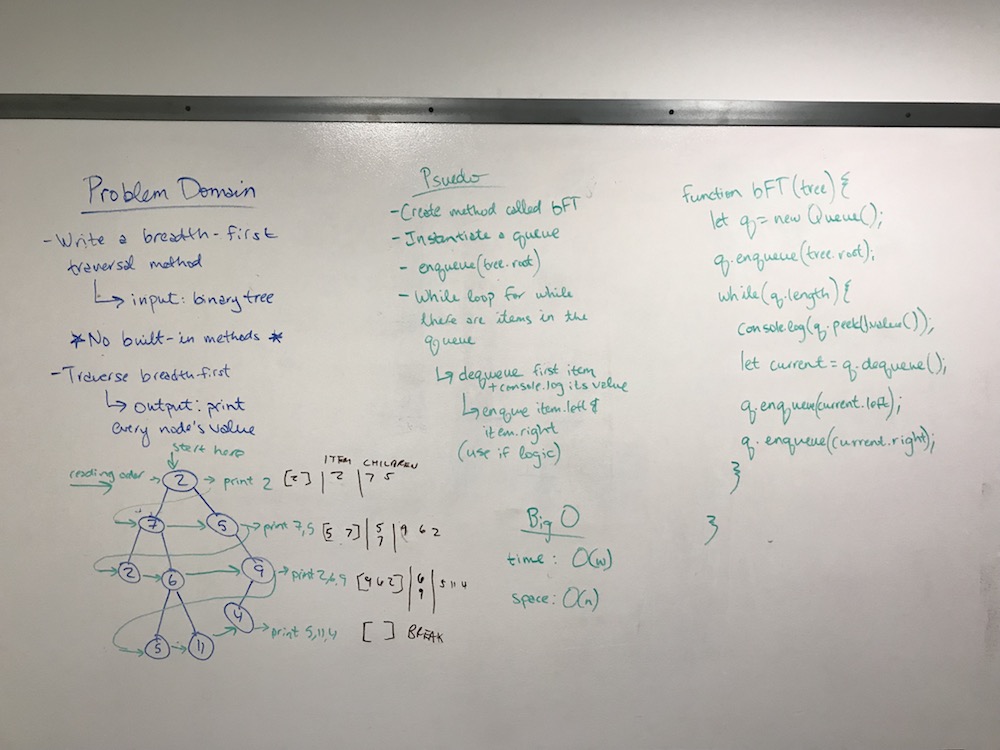 Problem Domain
- Write a breadth-first
traversal method
↳ input: binary tree
*No built-in methods*
- Traverse breadth-first
↳ output: print
every node's value
start here
reading order → 2 → print 2 [2] | 2 | 7 5
ITEM CHILDREN
7 5 → print 7,5 [5 7] | 5 7 | 9 6 2
2 6 9 → print 2,6,9 [9 6 2] | 6 9 | 5 11 4
4
5 11 → print 5,11,4 [ ] BREAK
Psuedo
- Create method called bFT
- Instantiate a queue
- enqueue(tree.root)
- While loop for while
there are items in the
queue
↳ dequeue first item
+ console.log its value
↳ enque item.left &
item.right
(use if logic)
Big O
time: O(w)
space: O(n)
function bFT(tree) {
let q = new Queue();
q.enqueue(tree.root);
while(q.length) {
console.log(q.peek().value());
let current = q.dequeue();
q.enqueue(current.left);
q.enqueue(current.right);
}
}